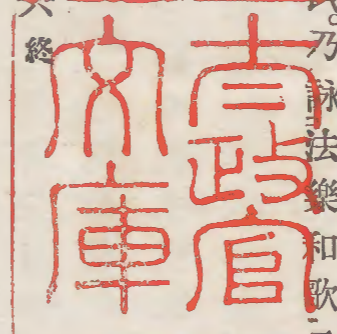 乃詠法樂和歌
太政官
文庫
終